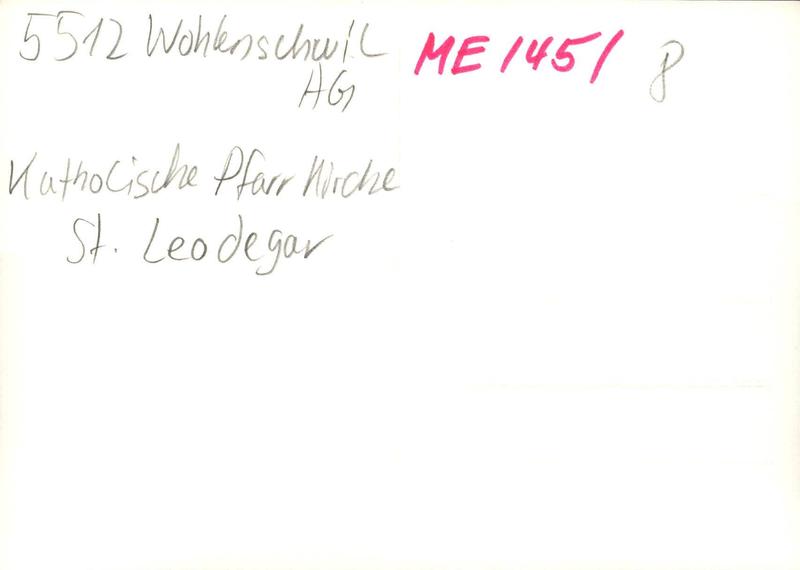 5512 Wohlenschwil
AG
ME 1451 8
Katholische Pfarr Kirche
St. Leodegar